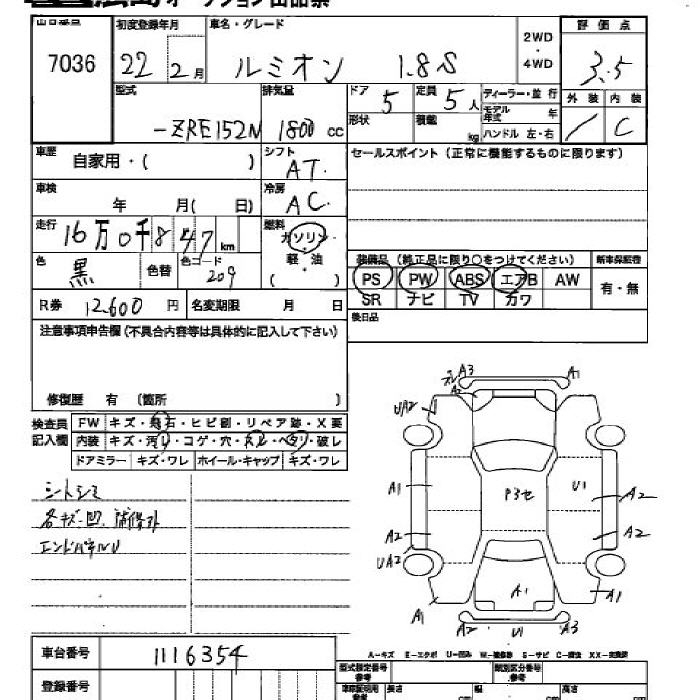 オークション出品票
出品番号 初度登録年月 車名・グレード 2WD・4WD 評価点
7036 22 2月 ルミオン 1.8S 3.5
型式 排気量 ドア 5 定員 5人 ディーラー・並行 外装 内装
-ZRE152N 1800cc 形状 積載 kg モデル年式 年 ハンドル 左・右 / C
車歴 自家用・( ) シフト AT. セールスポイント (正常に機能するものに限ります)
車検 年 月( 日) 冷房 AC
走行 16万0千847km 燃料 ガソリン・軽油 ( )
色 黒 色替 色コード 209
装備品 (純正品に限り○をつけてください) 新車保証書
PS PW ABS エアB AW 有・無
SR ナビ TV カワ
R券 12,600円 名変期限 月 日 後日品
注意事項申告欄 (不具合内容等は具体的に記入して下さい)
修復歴 有 (箇所 )
検査員記入欄 FW キズ・飛石・ヒビ割・リペア跡・X要
内装 キズ・汚レ・コゲ・穴・スレ・ヘタリ・破レ
ドアミラー キズ・ワレ ホイール・キャップ キズ・ワレ
シートシミ
各キズ・凹. 補修跡
エンドパネルU
A3 A1
A2
UA2
A1 P3セ U1 A2
A2 A2
UA2
A1 A1 A1
A2 U1 A3
A-キズ E-エクボ U-凹み W-補修跡 S-サビ C-腐食 XX-交換済
車台番号 1116354
登録番号
型式指定番号 参考 類別区分番号 参考
長さ cm 幅 cm 高さ cm